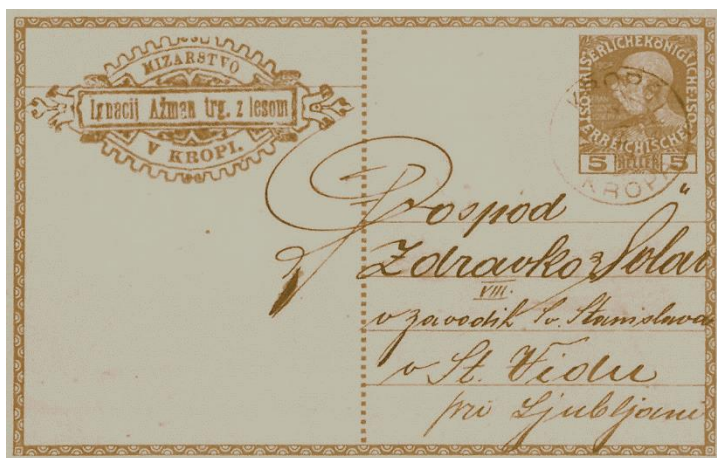 MIZARSTVO
Ignacij Ažman trg. z lesom
V KROPI.
KAISERLICHE KÖNIGLICHE
ÖSTERREICHISCHE
5 HELLER 5
KROPA
KROPA
Gospod
Zdravko Šolar
VIII.
v zavodih Sv. Stanislava
v St. Vidu
pri Ljubljani